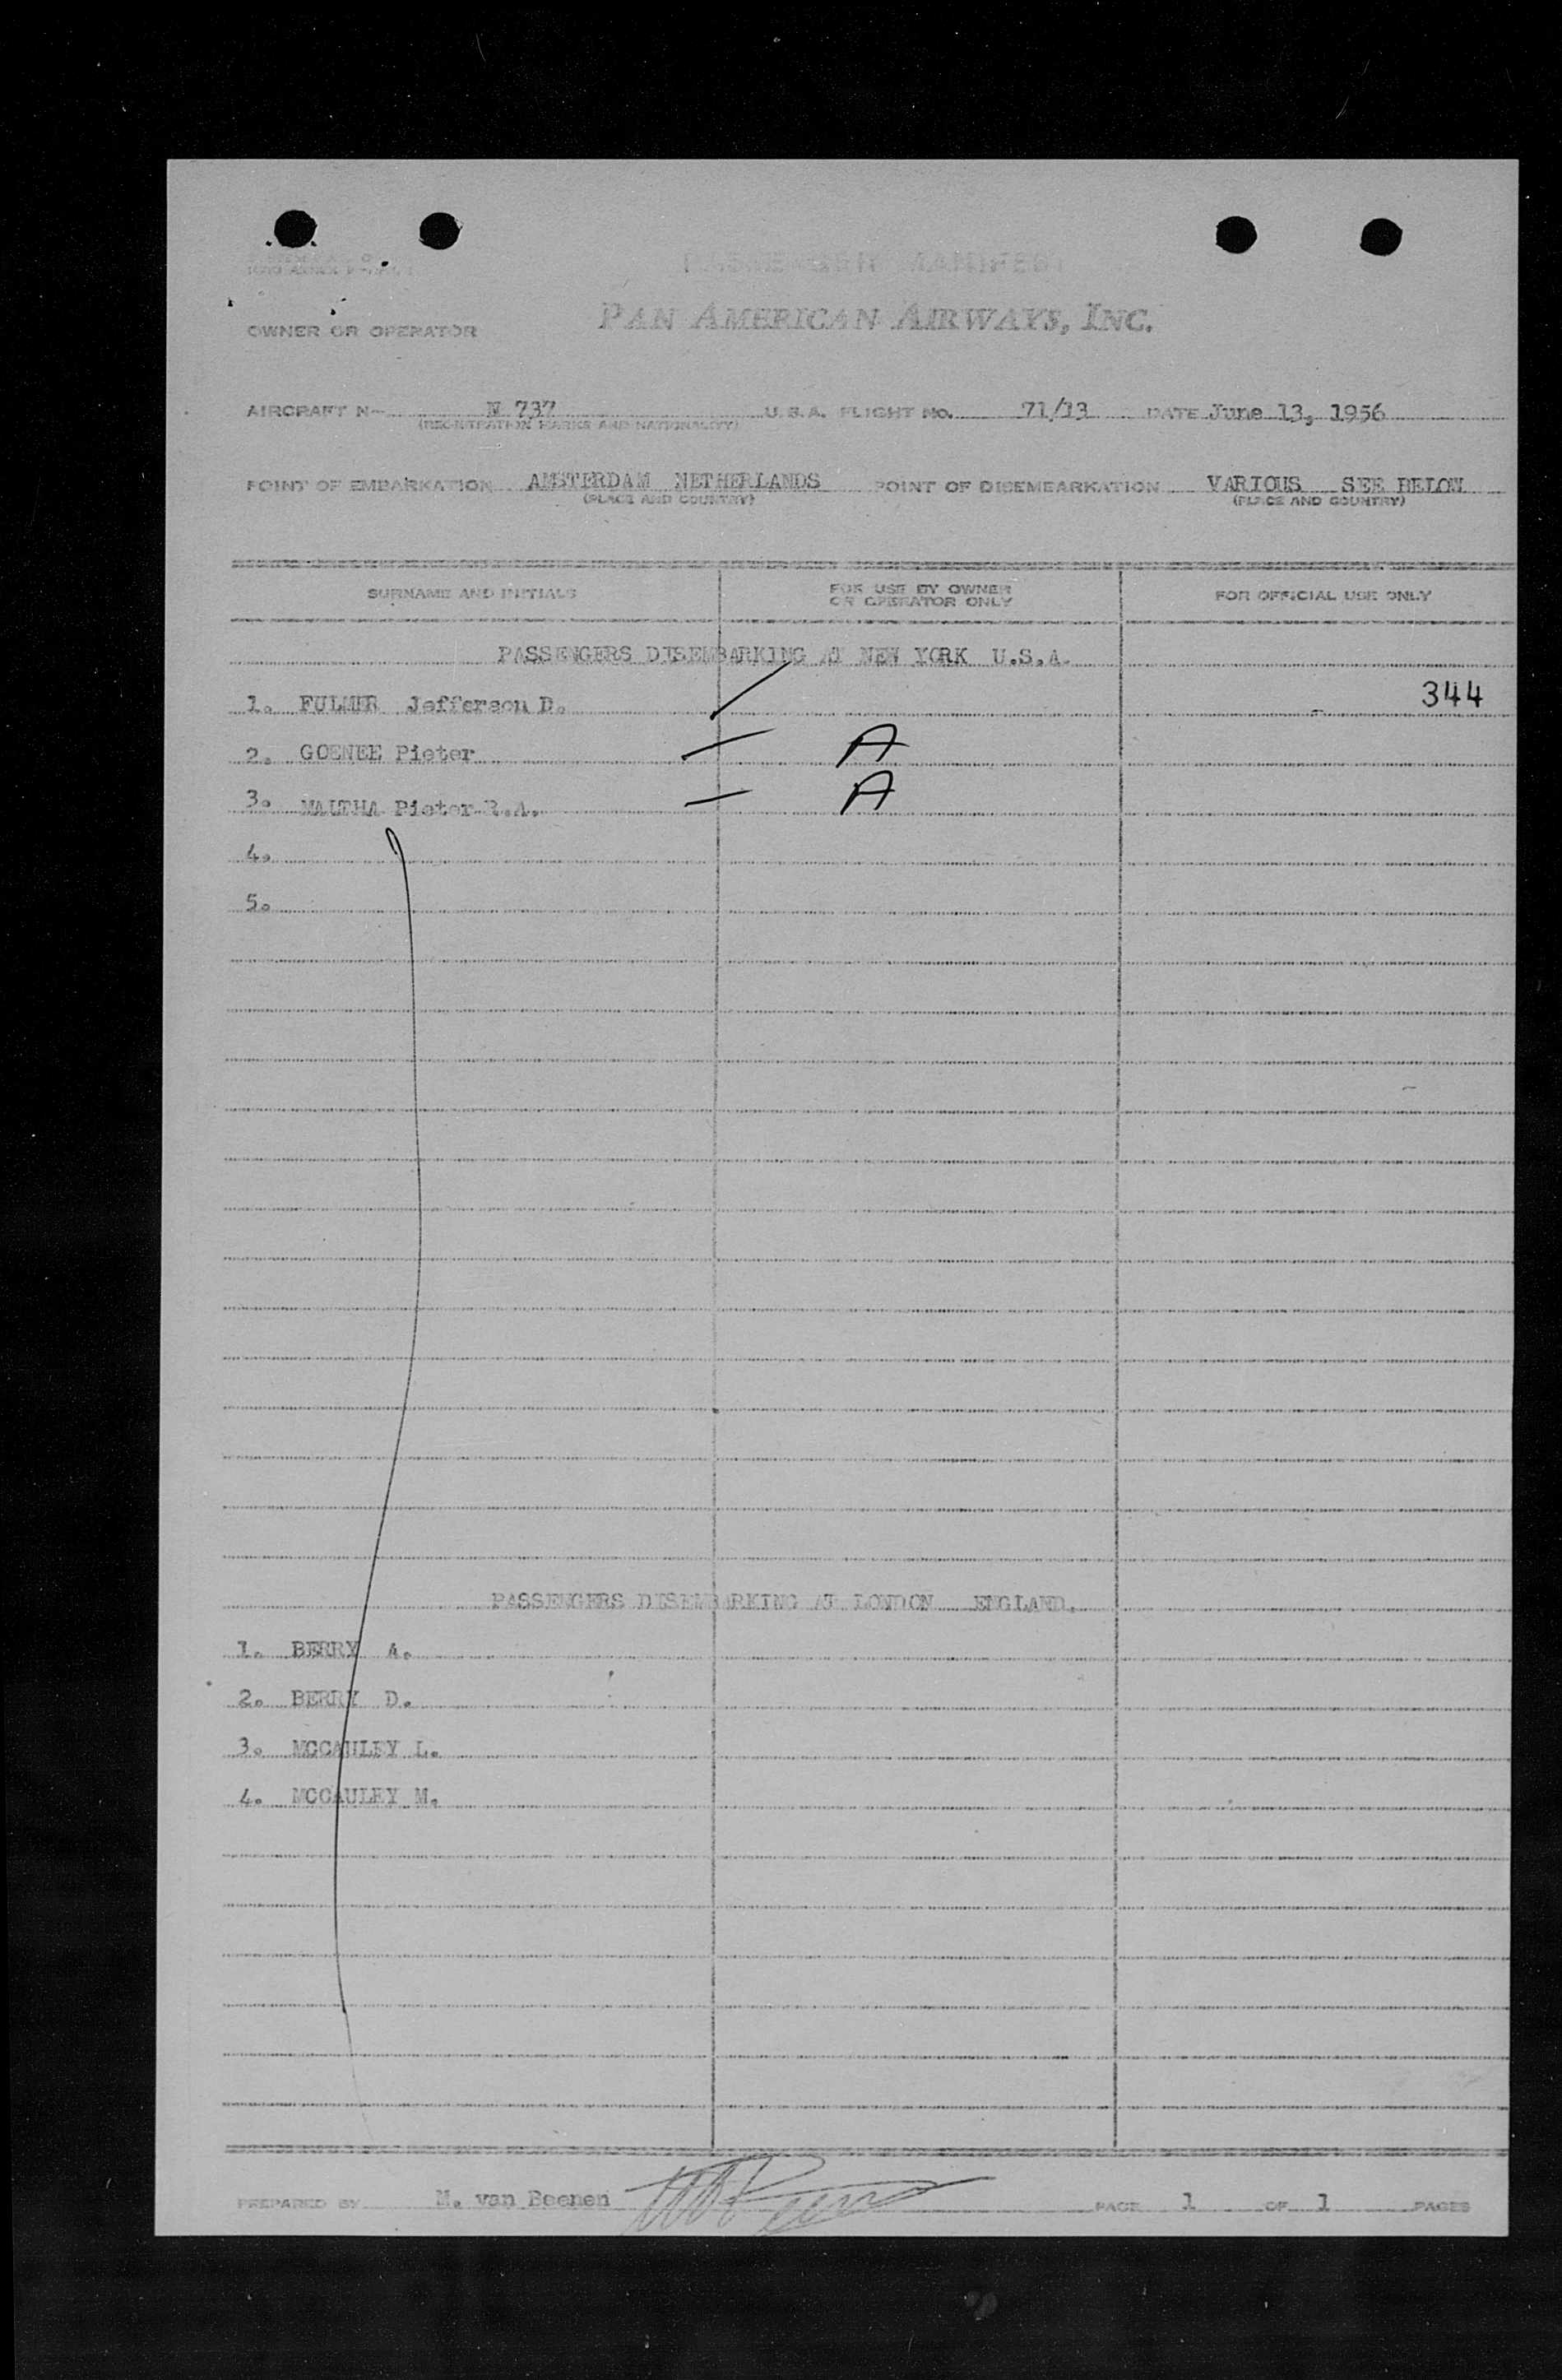 PASSENGER MANIFEST
OWNER OR OPERATOR PAN AMERICAN AIRWAYS, INC.
AIRCRAFT N 737 U.S.A. FLIGHT NO. 71/13 DATE June 13, 1956
(REGISTRATION MARKS AND NATIONALITY)
POINT OF EMBARKATION AMSTERDAM NETHERLANDS POINT OF DISEMBARKATION VARIOUS SEE BELOW
(PLACE AND COUNTRY) (PLACE AND COUNTRY)
SURNAME AND INITIALS FOR USE BY OWNER OR OPERATOR ONLY FOR OFFICIAL USE ONLY
PASSENGERS DISEMBARKING AT NEW YORK U.S.A.
1. FULMER Jefferson D. 344
2. GOENEE Pieter A
3. MALTHA Pieter R.A. A
4.
5.
PASSENGERS DISEMBARKING AT LONDON ENGLAND.
1. BERRY A.
2. BERRY D.
3. MCCAULEY L.
4. MCCAULEY M.
PREPARED BY M. van Beenen PAGE 1 OF 1 PAGES